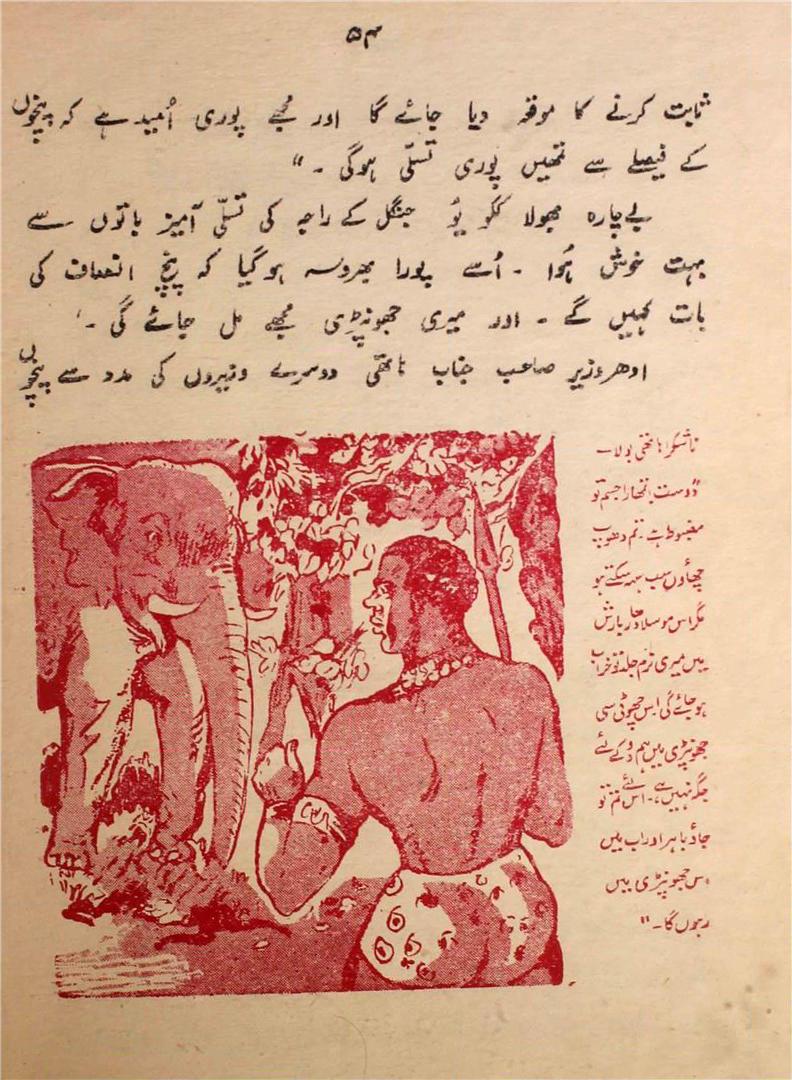 ۵۴
ثابت کرنے کا موقعہ دیا جائے گا اور مجھے پوری اُمید ہے کہ پنچوں
کے فیصلے سے تمہیں پوری تسلّی ہوگی ۔"
بے چارہ بھولا ککو یُو جنگل کے راجہ کی تسلّی آمیز باتوں سے
بہت خوش ہُوا ۔ اُسے پورا بھروسہ ہو گیا کہ پنچ انصاف کی
بات کہیں گے ۔ اور میری جھونپڑی مجھے مل جائے گی ۔'
اودھر وزیر صاحب جناب ہاتھی دوسرے وزیروں کی مدد سے پنچوں
ناشکرا ہاتھی بولا۔
"دوست! تمھارا جسم تو
مضبوط ہے ۔ تم دھوپ
چھاؤں سب سہہ سکتے ہو
مگر اس موسلا دھار بارش
میں میری نرم جلد تو خراب
ہو جائے گی اس چھوٹی سی
جھونپڑی میں ہم دو کے لئے
جگہ نہیں ہے ۔ اس لئے تم تو
جاؤ باہر اور اب میں
اس جھونپڑی میں
رہوں گا ۔"